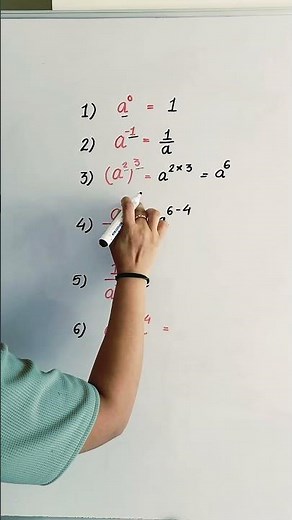 1) a⁰ = 1
2) a⁻¹ = 1/a
3) (a²)³ = a²ˣ³ = a⁶
4) a 6-4
5) 1/a
6) 4 =